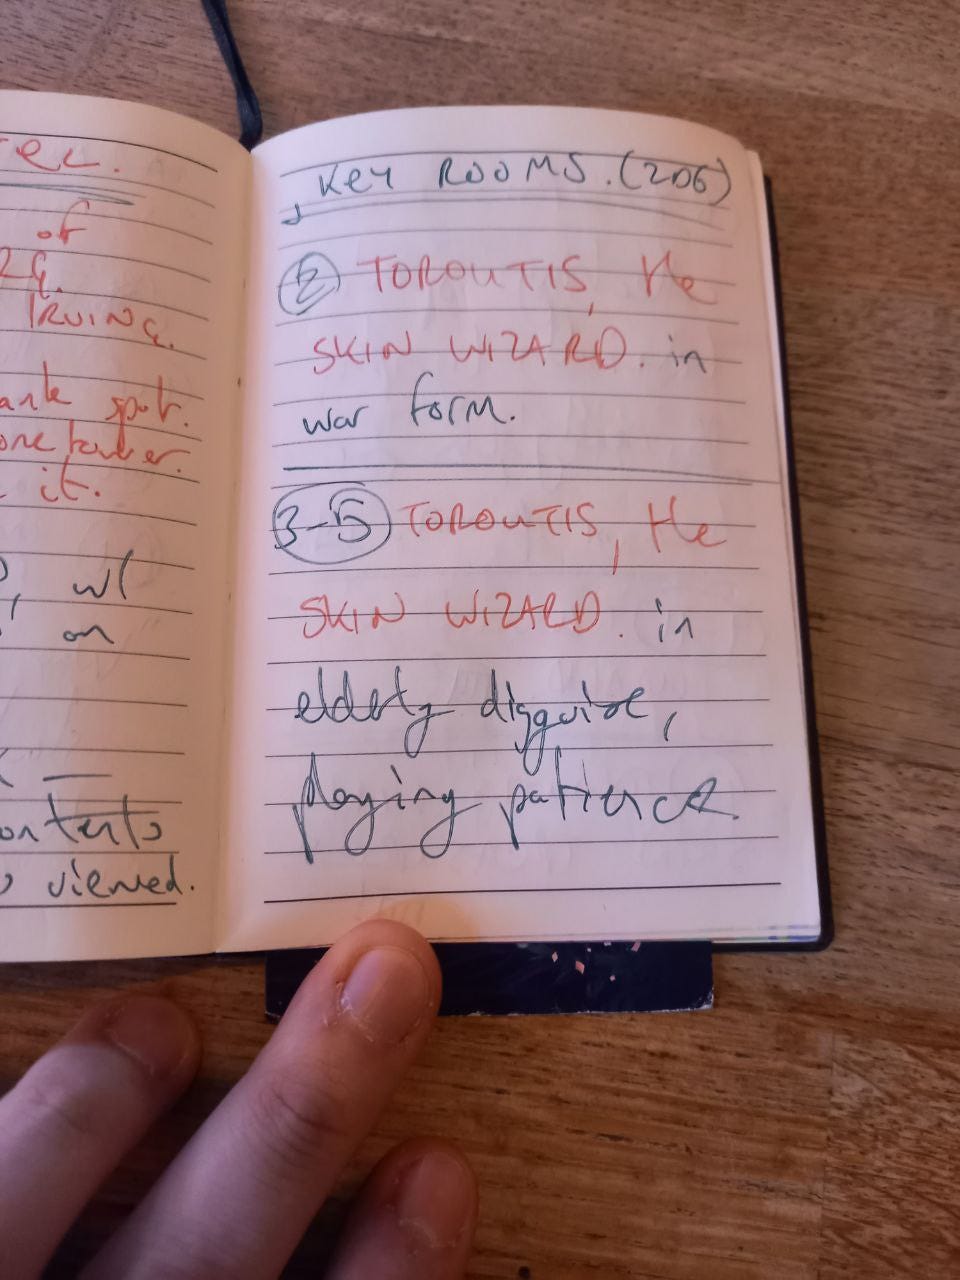 of
IRVING.
spot.
it.
w/
on
viewed.
KEY ROOMS. (2D6)
2 TOROUTIS, the
SKIN WIZARD. in
war form.
3-5 TOROUTIS, the
SKIN WIZARD. in
elderly disguise,
playing patience.